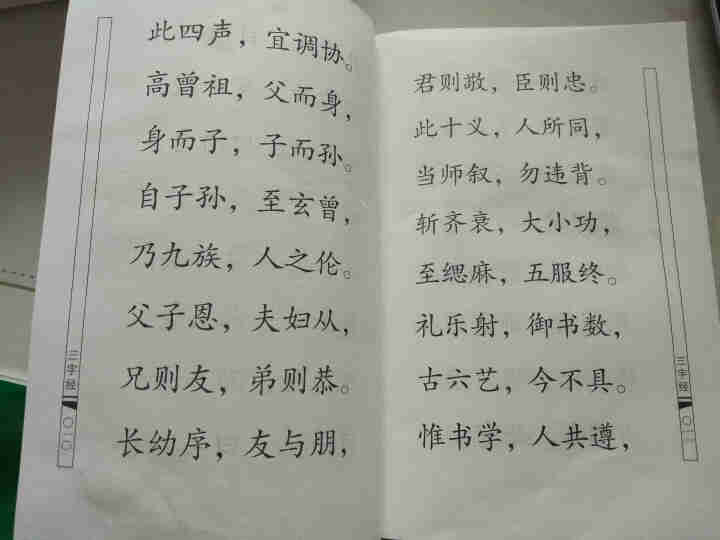 此四声，宜调协。
高曾祖，父而身，
身而子，子而孙。
自子孙，至玄曾，
乃九族，人之伦。
父子恩，夫妇从，
兄则友，弟则恭。
长幼序，友与朋，
三字经
君则敬，臣则忠。
此十义，人所同，
当师叙，勿违背。
斩齐衰，大小功，
至缌麻，五服终。
礼乐射，御书数，
古六艺，今不具。
惟书学，人共遵，
三字经